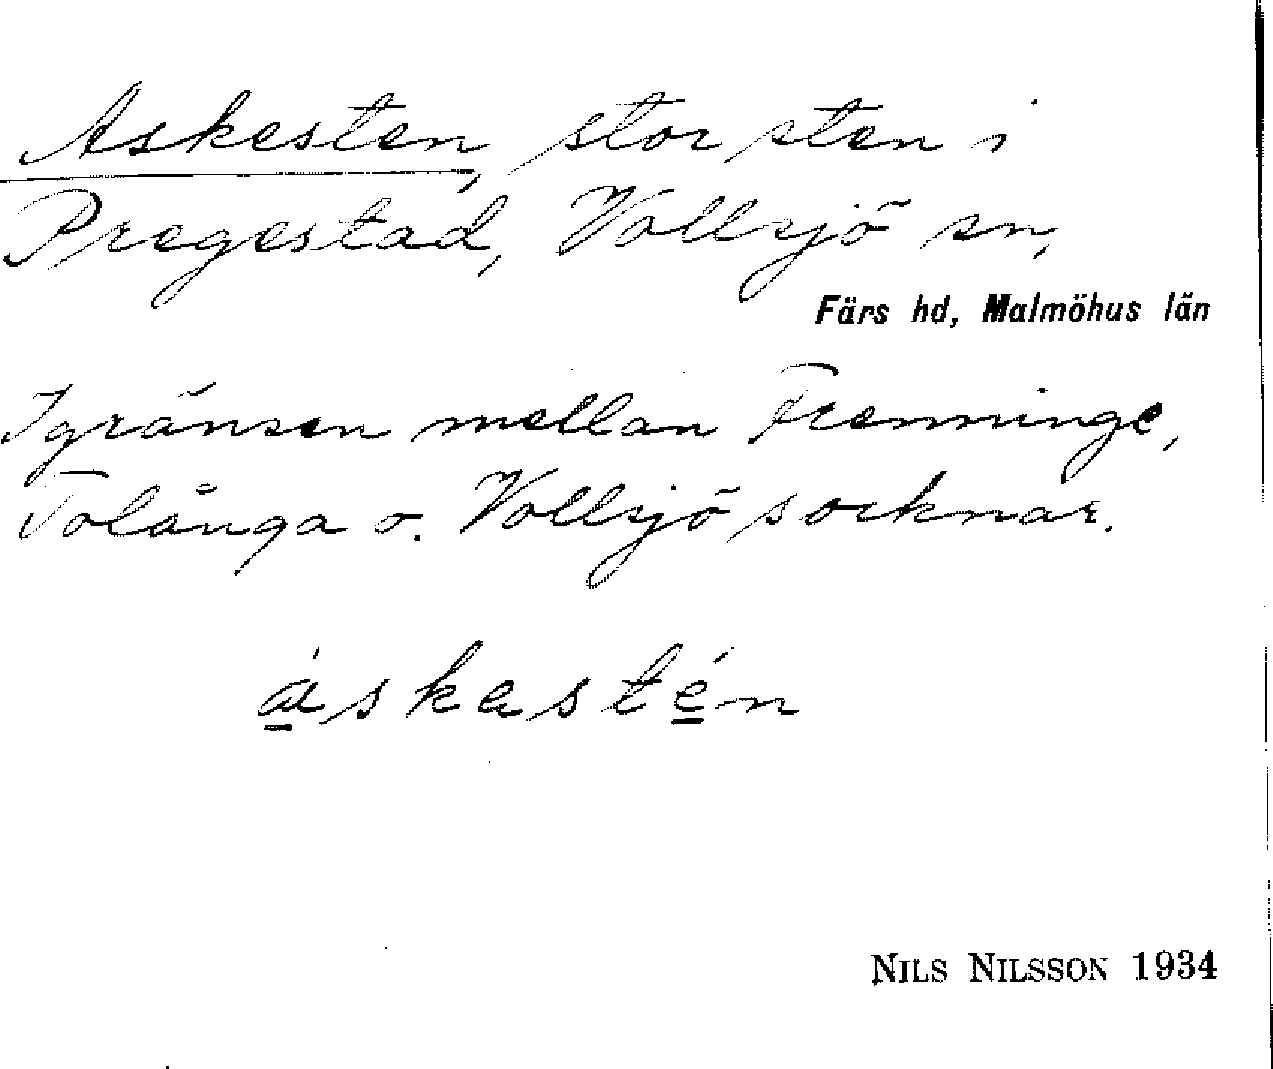 Askesten, stor sten i
Pregestad, Vollsjö sn,
Färs hd, Malmöhus län
I gränsen mellan Frenninge,
Tolånga o. Vollsjö socknar.
áskastén
NILS NILSSON 1934